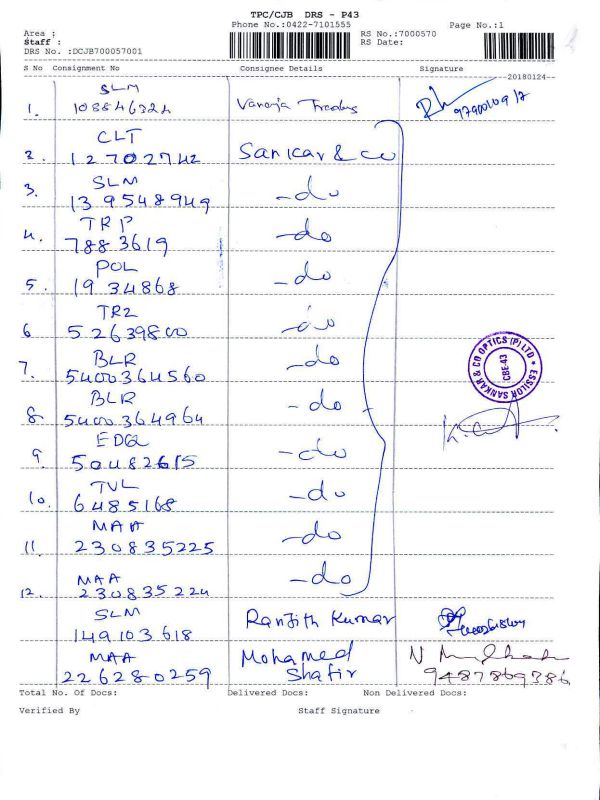 TPC/CJB DRS - P43
Phone No.:0422-7101555
Page No.:1
Area :
Staff :
RS No.:7000570
DRS No. :DCJB700057001
RS Date:
S No Consignment No Consignee Details Signature
20180124
SLM
1. 108846324 Vanaja Traders
CLT
2. 12702742 Sankar & co
SLM
3. 139548949 -do
TRP
4. 7883619 -do
POL
5. 1934868 -do
TRZ
6 52639800 -do
BLR
7. 5400364560 -do
BLR
8. 5400364964 -do
EDGL
9. 50482615 -do
TVL
10. 6485168 -do
MAA
11. 230835225 -do
MAA
12. 230835224 -do
ESSILOR SANKAR & CO OPTICS (P) LTD
CBE-43
SLM
149103618 Ranjith Kumar
MAA
226280259 Mohamed Shafir
9487869386
Total No. Of Docs: Delivered Docs: Non Delivered Docs:
Verified By Staff Signature